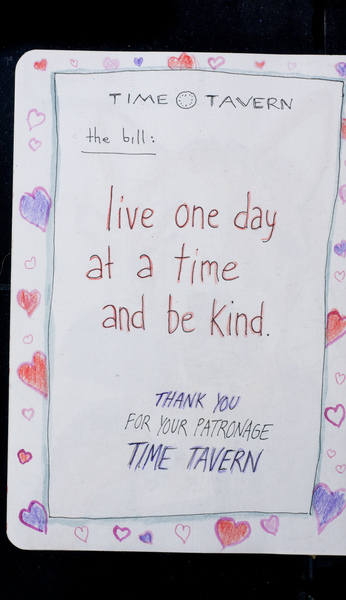 TIME TAVERN
the bill:
live one day
at a time
and be kind.
THANK YOU
FOR YOUR PATRONAGE
TIME TAVERN